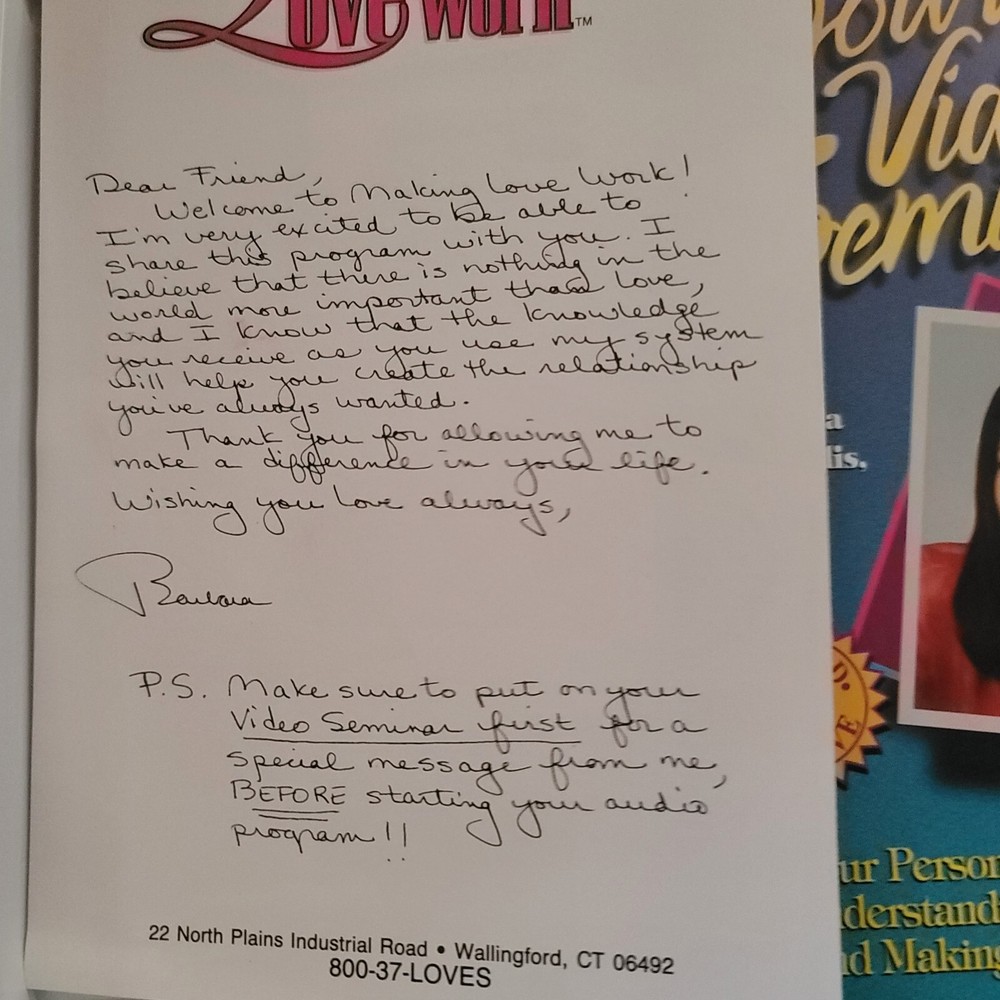 Love Work™
Dear Friend,
Welcome to Making Love Work!
I'm very excited to be able to
share this program with you. I
believe that there is nothing in the
world more important than love,
and I know that the knowledge
you receive as you use my system
will help you create the relationship
you've always wanted.
Thank you for allowing me to
make a difference in your life.
Wishing you love always,
Barbara
P.S. Make sure to put on your
Video Seminar first for a
special message from me,
BEFORE starting your audio
program!!
22 North Plains Industrial Road • Wallingford, CT 06492
800-37-LOVES
Vid
emi
a
lis,
ur Person
derstand
d Making